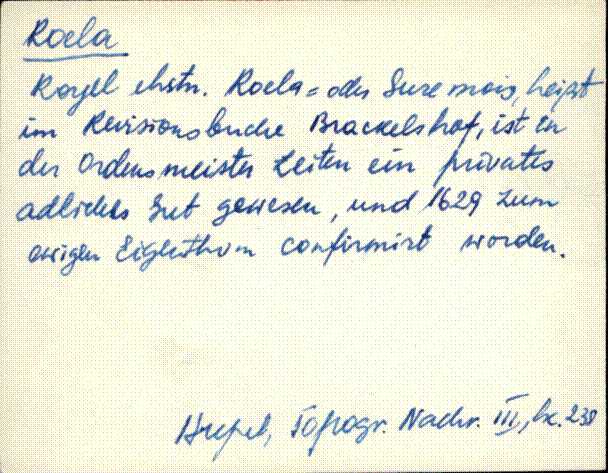 Roela
Royel ehstn. Roela= oder Suremois, heißt
im Revisionsbuche Brackelshof, ist in
der Ordensmeister Zeiten ein privates
adliches Gut gewesen, und 1629 zum
ewigen Eigenthum confirmirt worden.
Hupel, Topogr. Nachr. III, lk. 238